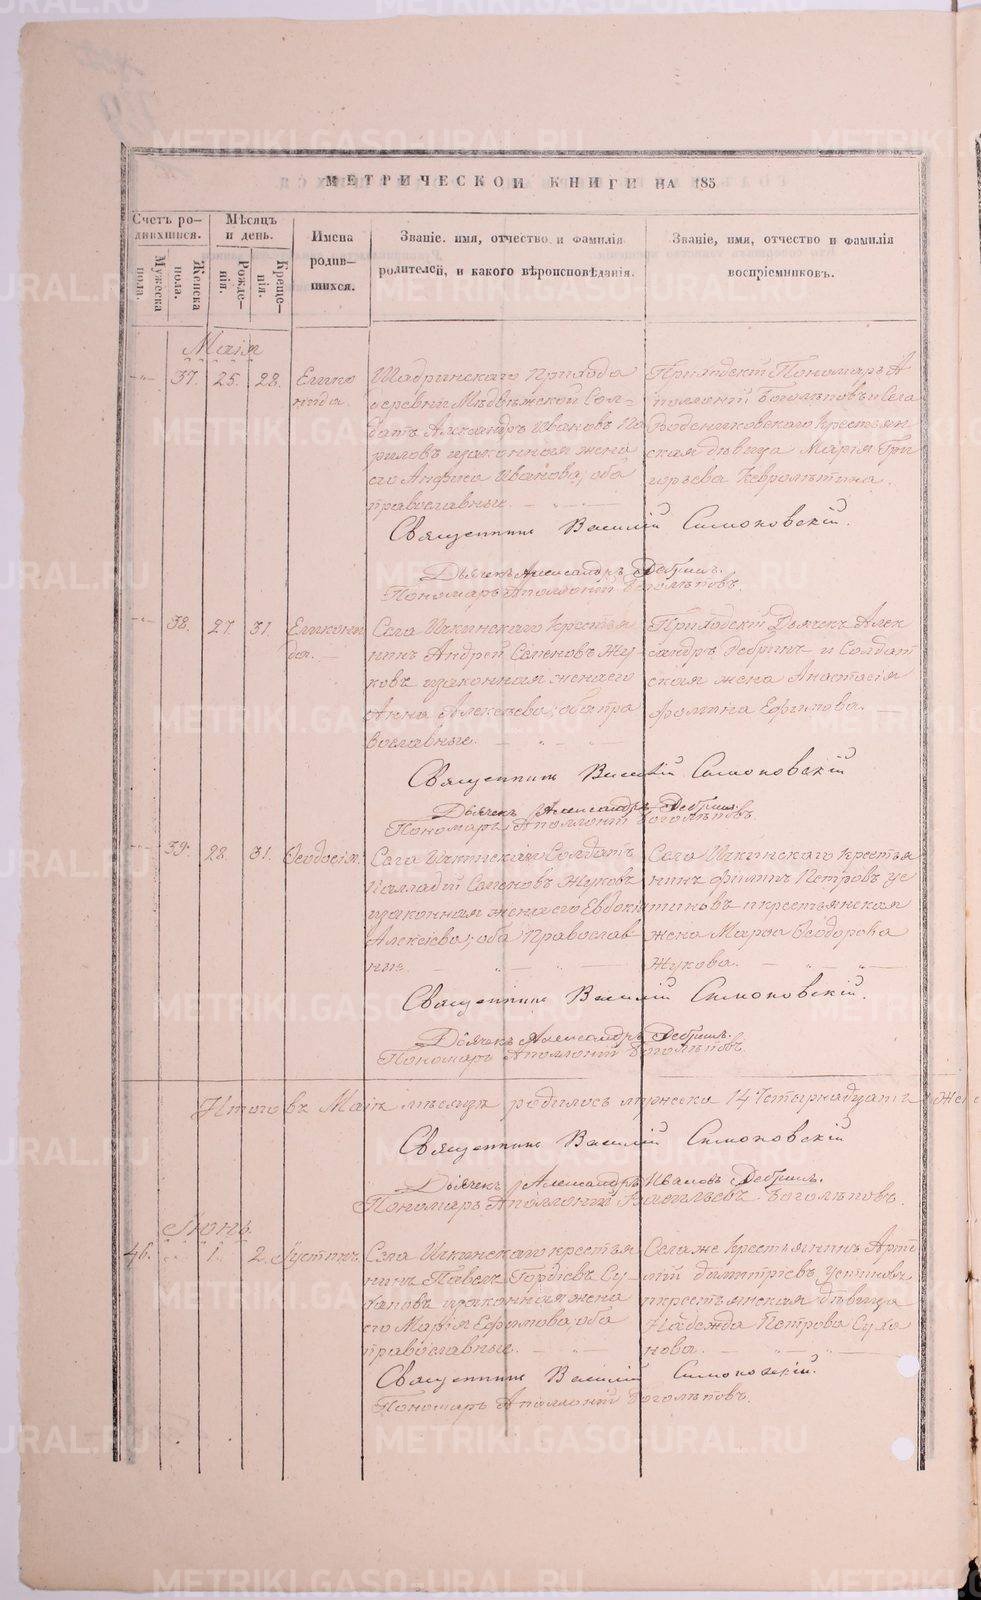 МЕТРИЧЕСКОЙ КНИГИ НА 185
Счетъ ро-
дившихся.
Мужеска
пола.
Женска
пола.
Мѣсяцъ
и день.
Рожде-
нія.
Креще-
нія.
Имена
родив-
шихся.
Званіе, имя, отчество и фамилія
родителей, и какого вѣроисповѣданія.
Званіе, имя, отчество и фамилія
воспріемниковъ.
Маія
37. 25. 28.
Шадринскаго прихода
деревни Солдатъ Александръ Ивановъ
и законная жена
его Ивáнова, оба
православные.
Приходскій Пономарь
Боголѣповъ и Села
Крестьян
ская дѣвица Марія Гри
горьева
Священникъ Василій Симоновскій.
Дьячекъ Александръ Дебринъ.
Пономарь Аполлоній Боголѣповъ.
38. 27. 31.
Села Ичкинскаго Крестья
нинъ Андрей Семеновъ Жу
ковъ и законная жена его
Анна Алексѣева, оба пра
вославные.
Приходскій Дьячекъ Алек
сандръ Дебринъ и Солдат
ская жена Анастасія
Фомина Ефимова.
Священникъ Василій Симоновскій
Дьячекъ Александръ Дебринъ.
Пономарь Аполлоній Боголѣповъ.
39. 28. 31. Ѳеодосія.
Села Ичкинскаго Солдатъ
Палладій Семеновъ Жуковъ
и законная жена его Евдокія
Алексѣева, оба Православ-
ные.
Села Ичкинскаго Крестья
нинъ Филипъ Петровъ Ус
тиновъ и крестьянская
жена Марѳа Ѳеодорова
Жукова.
Священникъ Василій Симоновскій.
Дьячекъ Александръ Дебринъ.
Пономарь Аполлоній Боголѣповъ.
Итого въ Маіѣ мѣсяцѣ родилось мужеска 14 Четырнадцать
Священникъ Василій Симоновскій
Дьячекъ Александръ Ивановъ Дебринъ.
Пономарь Аполлоній Васильевъ Боголѣповъ.
Іюнь
46. 1. 2. Іустинъ
Села Ичкинскаго крестья
нинъ Павелъ Гордѣевъ Су
хановъ и законная жена
его Марія Ефимова, оба
православные.
Села же Крестьянинъ Арте
мій Димитріевъ Устиновъ
и крестьянская дѣвица
Надежда Петрова Суха
нова.
Священникъ Василій Симоновскій.
Пономарь Аполлоній Боголѣповъ.
METRIKI.GASO-URAL.RU